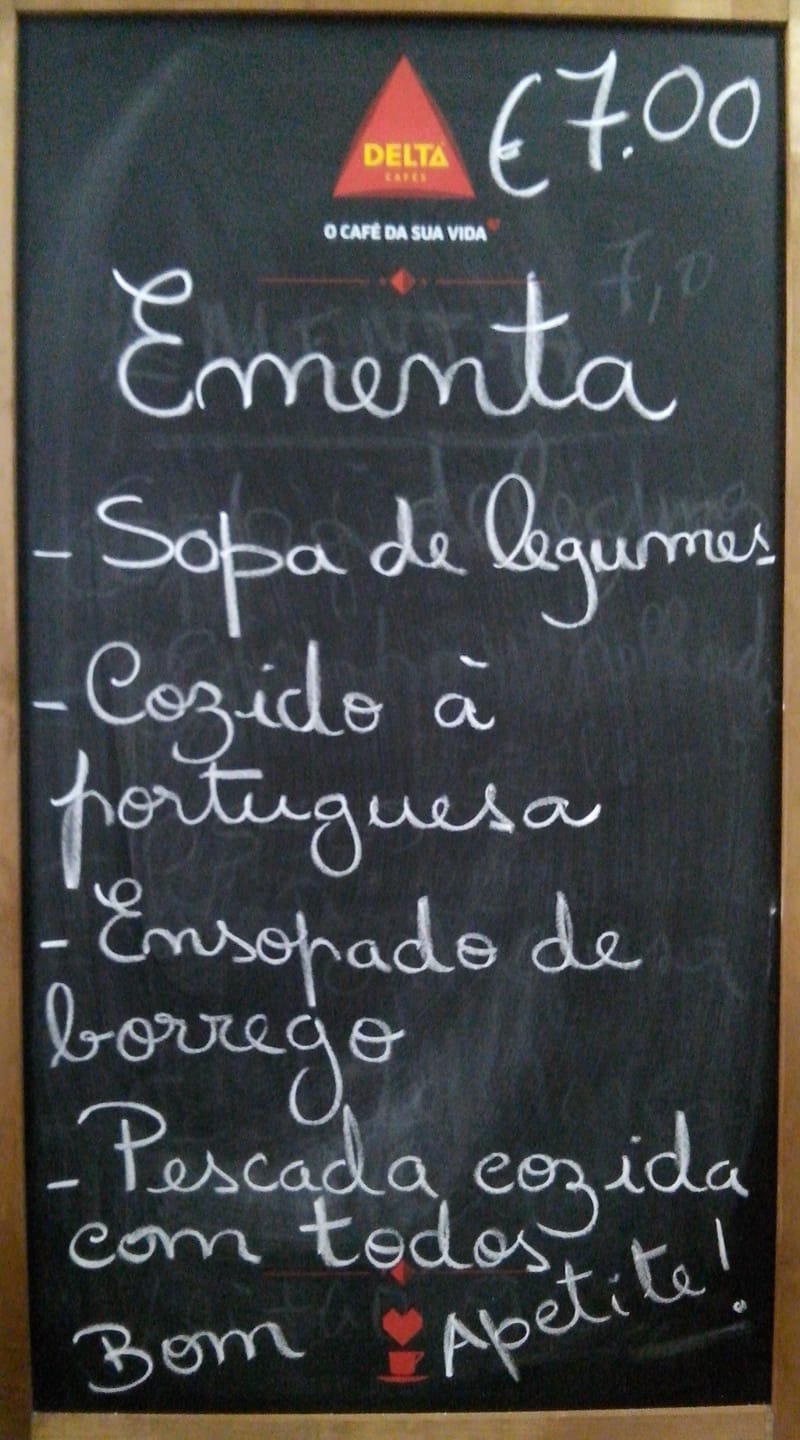 €7.00
DELTA
CAFÉS
O CAFÉ DA SUA VIDA
7,0
Ementa
- Sopa de legumes
- Cozido à
portuguesa
- Ensopado de
borrego
- Pescada cozida
com todos
Bom Apetite!